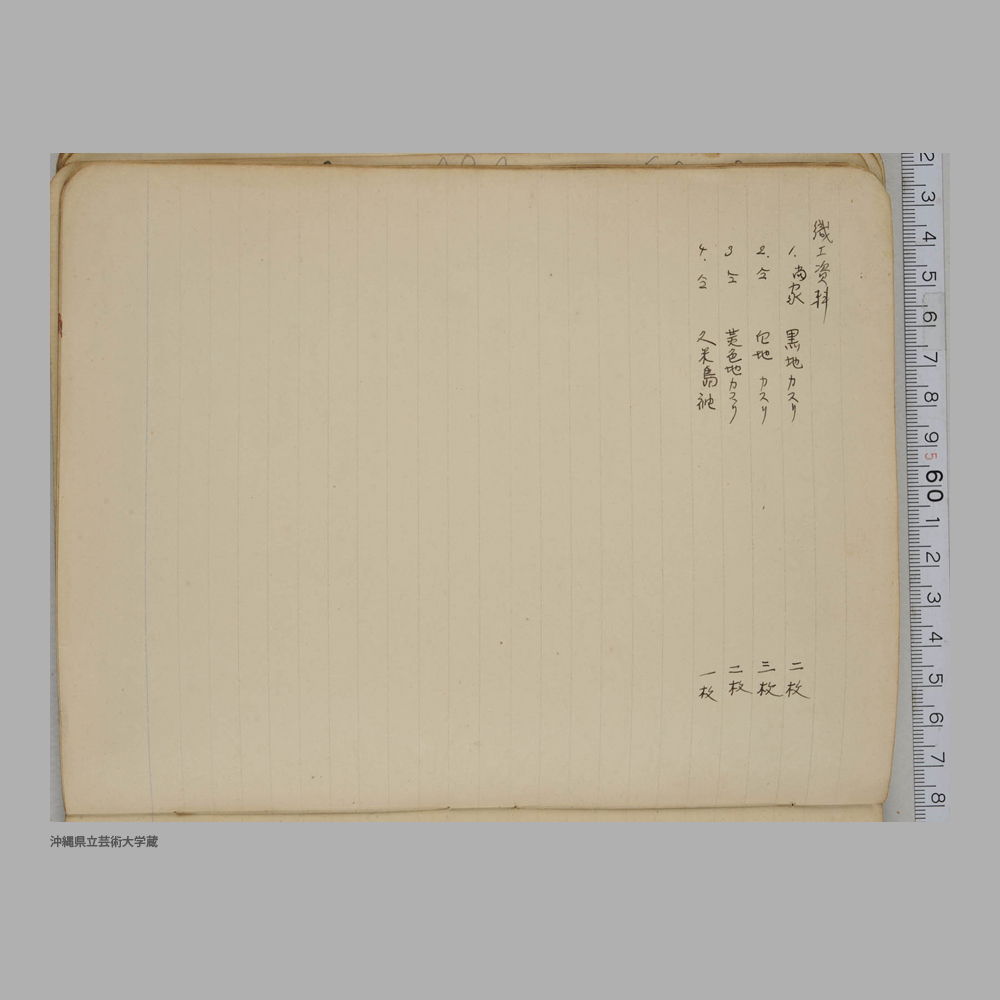 織工資料
1. 尚家 黒地カスリ 二枚
2. 仝 白地カスリ 三枚
3 仝 黄色地カスリ 二枚
4. 仝 久米島紬 一枚
2 3 4 5 6 7 8 9 5 60 1 2 3 4 5 6 7 8
沖縄県立芸術大学蔵